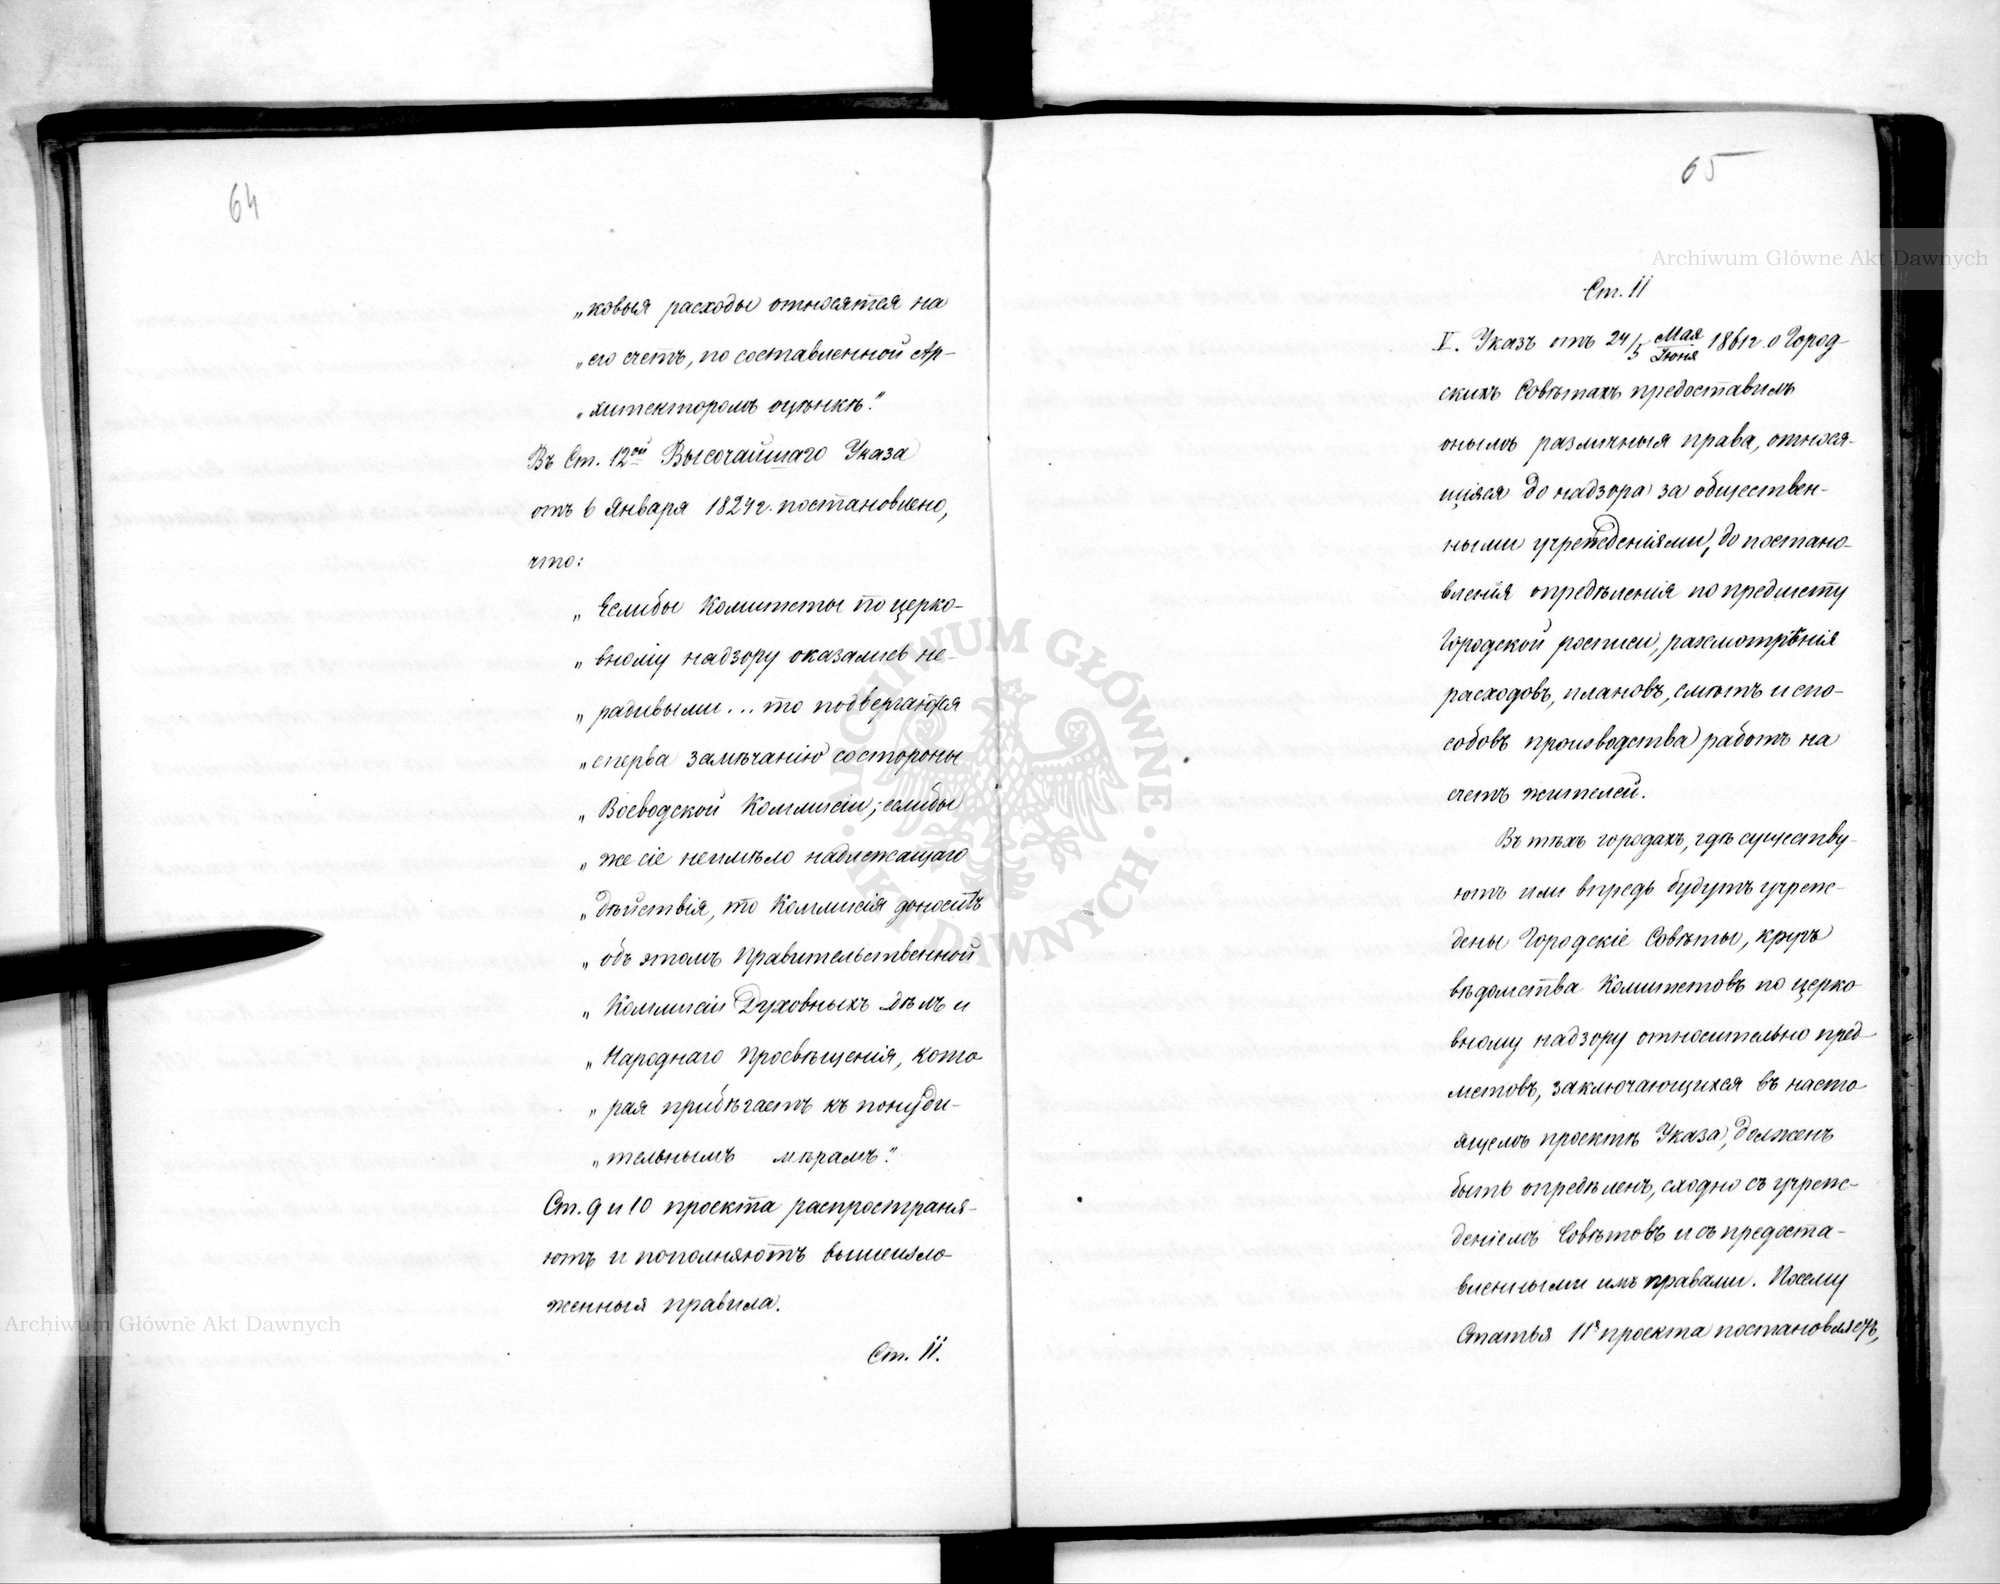 64
„ковыя расходы относятся на
„его счетъ, по составленной Ар-
„хитекторомъ оцѣнкѣ."
Въ Ст. 12ой Высочайшаго Указа
отъ 6 Января 1824г. постановлено,
что:
„Еслибы Комитеты по церко-
„вному надзору оказались не-
„радивыми... то подвергаются
„сперва замѣчанію со стороны
„Воеводской Коммисіи; еслибы
„же сіе неимѣло надлежащаго
„дѣйствія, то Коммисія доноситъ
„объ этомъ Правительственной
„Коммисіи Духовныхъ Дѣлъ и
„Народнаго Просвѣщенія, кото
„рая прибѣгаетъ къ понуди-
„тельнымъ мѣрамъ."
Ст. 9 и 10 проекта распространя-
ютъ и пополняютъ вышеизло-
женныя правила.
Ст. 11.
65
Ст. 11
V. Указъ отъ 24/5 Мая/Іюня 1861г. о Город-
скихъ Совѣтахъ предоставилъ
онымъ различныя права, относя-
щіяся до надзора за обществен-
ными учрежденіями, до постано-
вленія опредѣленія по предмету
Городской росписи, разсмотрѣнія
расходовъ, плановъ, смѣтъ и спо-
собовъ производства работъ на
счетъ жителей.
Въ тѣхъ городахъ, гдѣ существу-
ютъ или впредь будутъ учреж-
дены Городскіе Совѣты, кругъ
вѣдомства Комитетовъ по церко
вному надзору относительно пред-
метовъ, заключающихся въ насто
ящемъ проектѣ Указа, долженъ
быть опредѣленъ, сходно съ учреж-
деніемъ Совѣтовъ и съ предоста-
вленными имъ правами. Посему
Статья 11я проекта постановляетъ,
Archiwum Główne Akt Dawnych
Archiwum Główne Akt Dawnych
ARCHIWUM GŁÓWNE AKT DAWNYCH